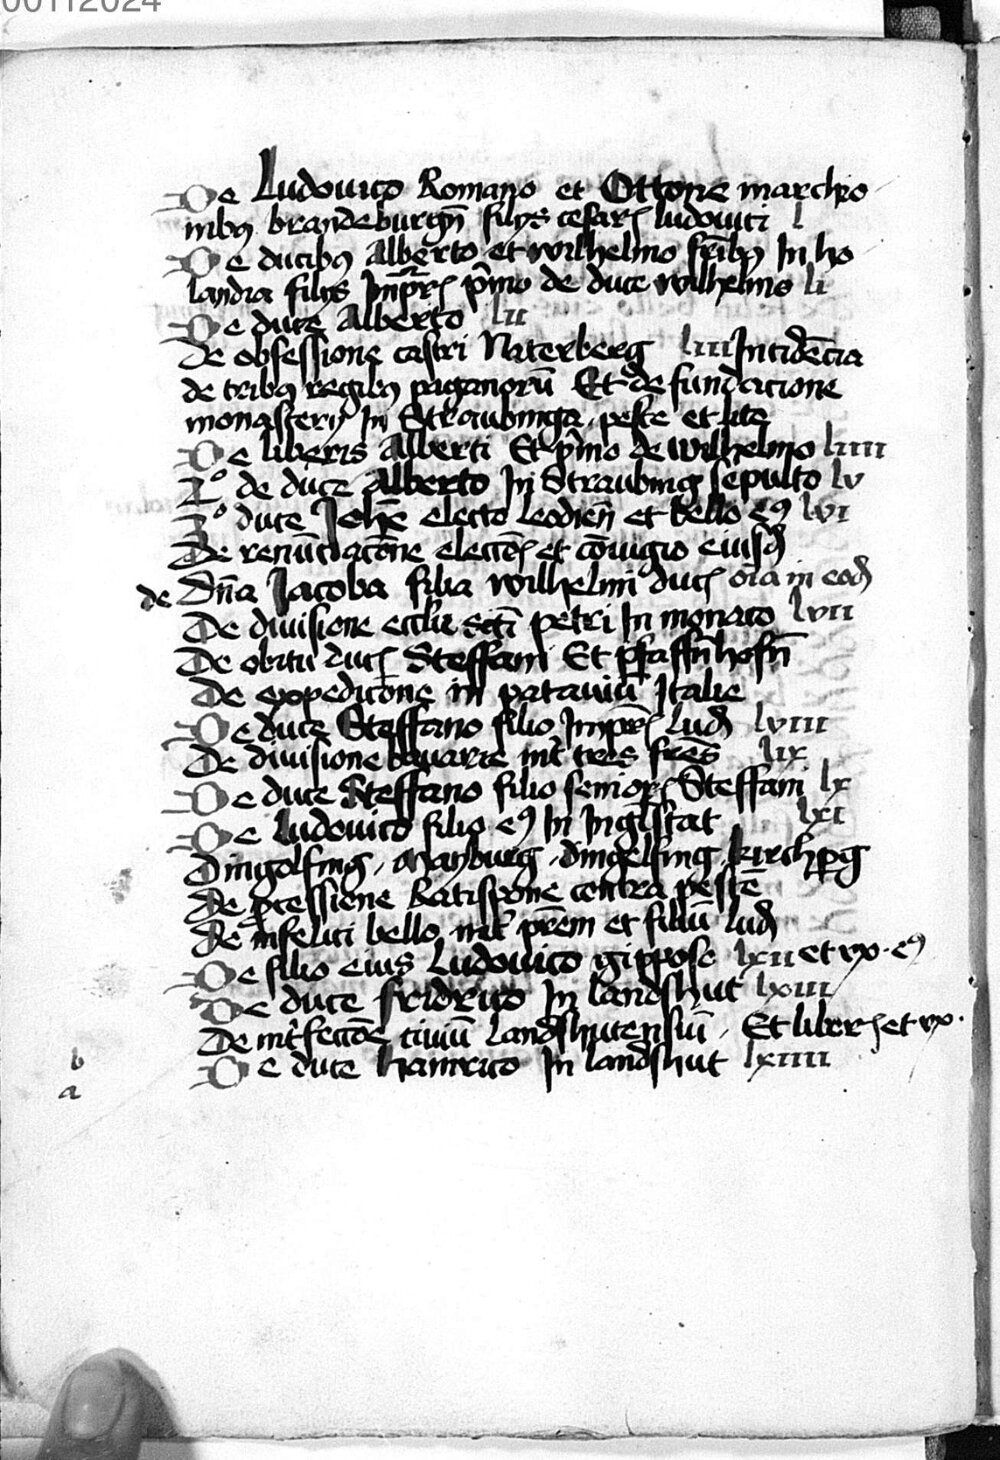 00112024
De Ludouico Romano et Ottone marchio
nibꝰ brandeburgn̄ filijs cesarꝭ ludouici l
De ducibꝰ Alberto et wilhelmo fr̄ibꝰ In ho
landia filijs Imprꝭ p̄mo de duce wilhelmo li
De duce Alberto lii
De obsessione castri Naterberg liii Incidēcia
de tribꝰ regibꝰ paganorū Et de fundacione
monasterij In Straubinga, peste et lite
De liberis Alberti Et p̄mo de wilhelmo liiii
2º de duce Alberto In Straubing sepulto lv
3º duce Johē electo Leodien̄ et bello eꝰ lvi
De renūciacōne eleccōꝭ et cōiugio eiusd
de Dn̄a Jacoba filia wilhelmi ducꝭ oīa in eod
De diuisione ecclie sct̄i petri In monaco lvii
De obitu ducꝭ Steffani Et pfaffn̄hofn̄
De expedicōne in patauiū Italie
De duce Steffano filio Imprꝭ Lud lviii
De diuisione bauarie int̄ tres fres̄ lix
De duce Steffano filio seniorꝭ Steffani lx
De Ludouico filio eꝰ In Inglstat lxi
Dingolfing, Mayburg, dingelfing kirchꝑg
De ꝓcessione Ratispone contra pestē
De infelici bello int̄ prēm et filiū Lud
De filio eius Ludouico gippose lxii et vx. eꝰ
De duce fridrico In landshut lxiii
De int̄feccōe ciuiū Landshutensiū, Et liberꝭ et vx.
b
De duce hainrico In landshut lxiiii
a